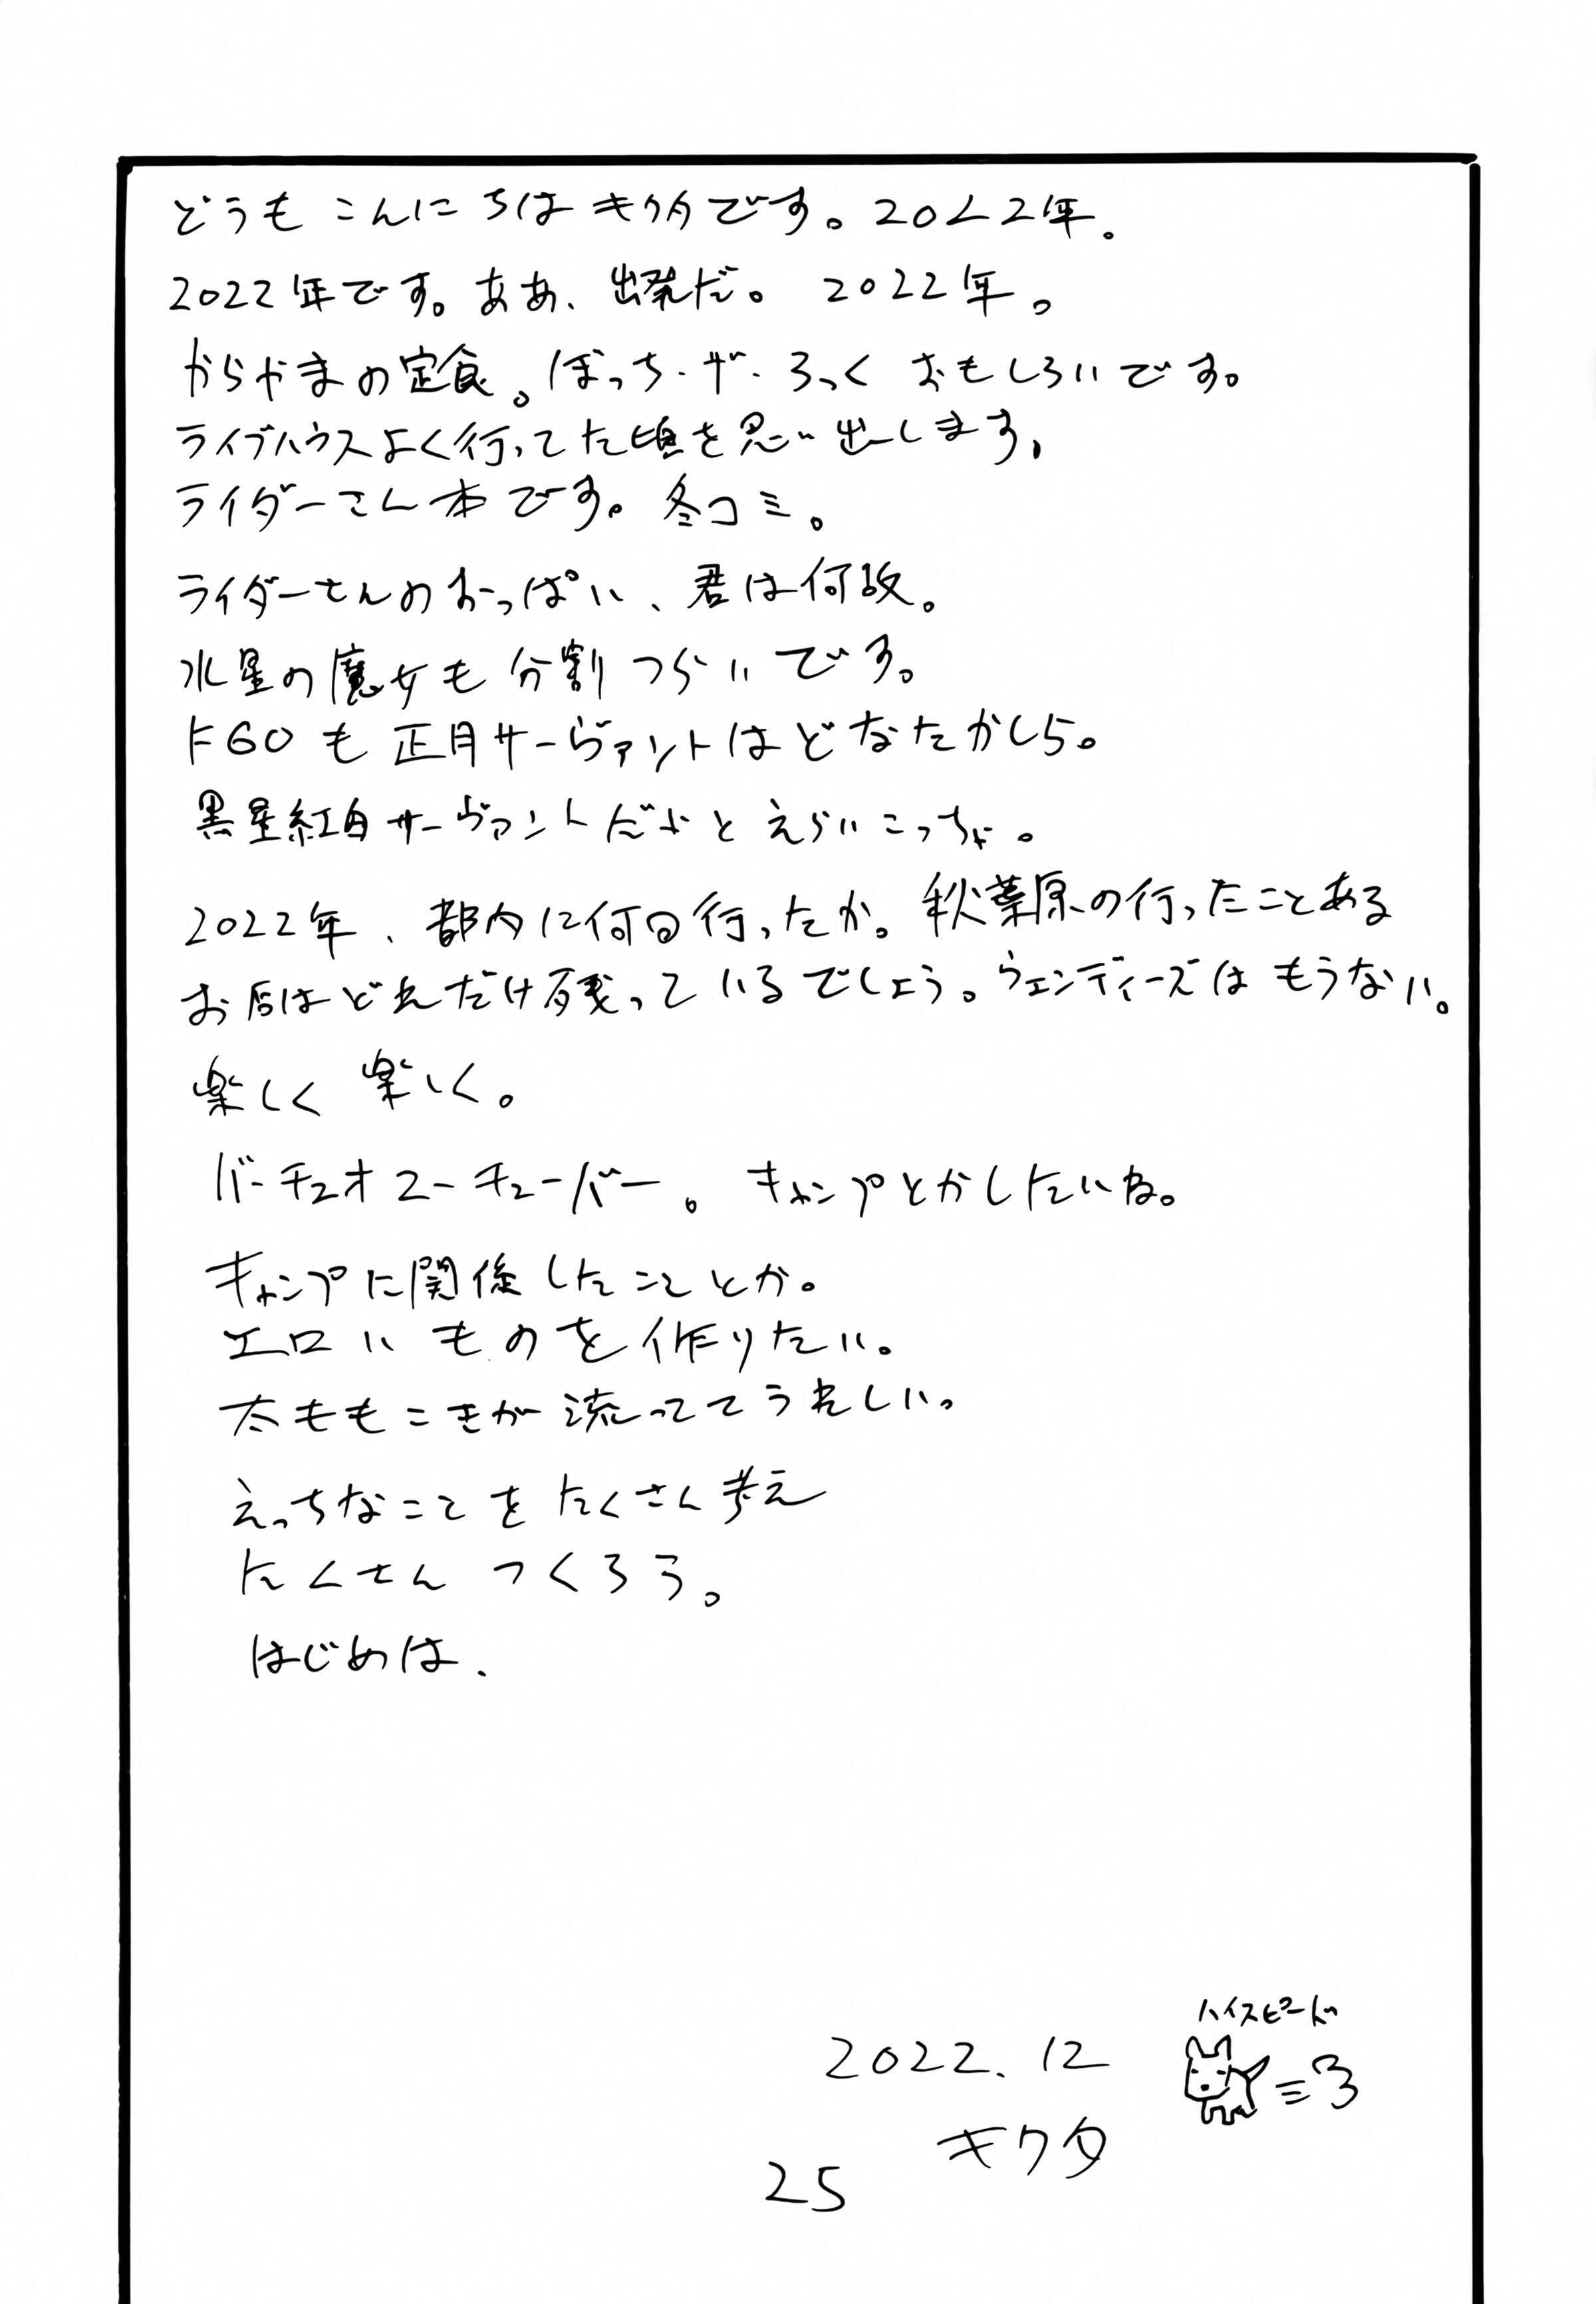 どうも こんにちは キクタです。2022年。
2022年です。ああ、出発だ。 2022年。
からやまの定食。ぼっち・ザ・ろっく おもしろいです。
ライブハウスよく行ってた頃を思い出します。
ライダーさん本です。冬コミ。
ライダーさんのおっぱい、君は何故。
水星の魔女も分割つらいです。
FGOも正月サーヴァントはどなたかしら。
黒星紅白サーヴァントだよと えらいこっちゃ。
2022年、都内に何回行ったか。秋葉原の行ったことある
お店はどれだけ残っているでしょう。ウェンディーズはもうない。
楽しく 楽しく。
バーチュオユーチューバー。キャンプとかしたいね。
キャンプに関係したこととか。
エロいものを作りたい。
太ももこきが流っててうれしい。
えっちなことをたくさん考え
たくさん つくろう。
はじめは、
ハイスピード
2022.12
キクタ
25